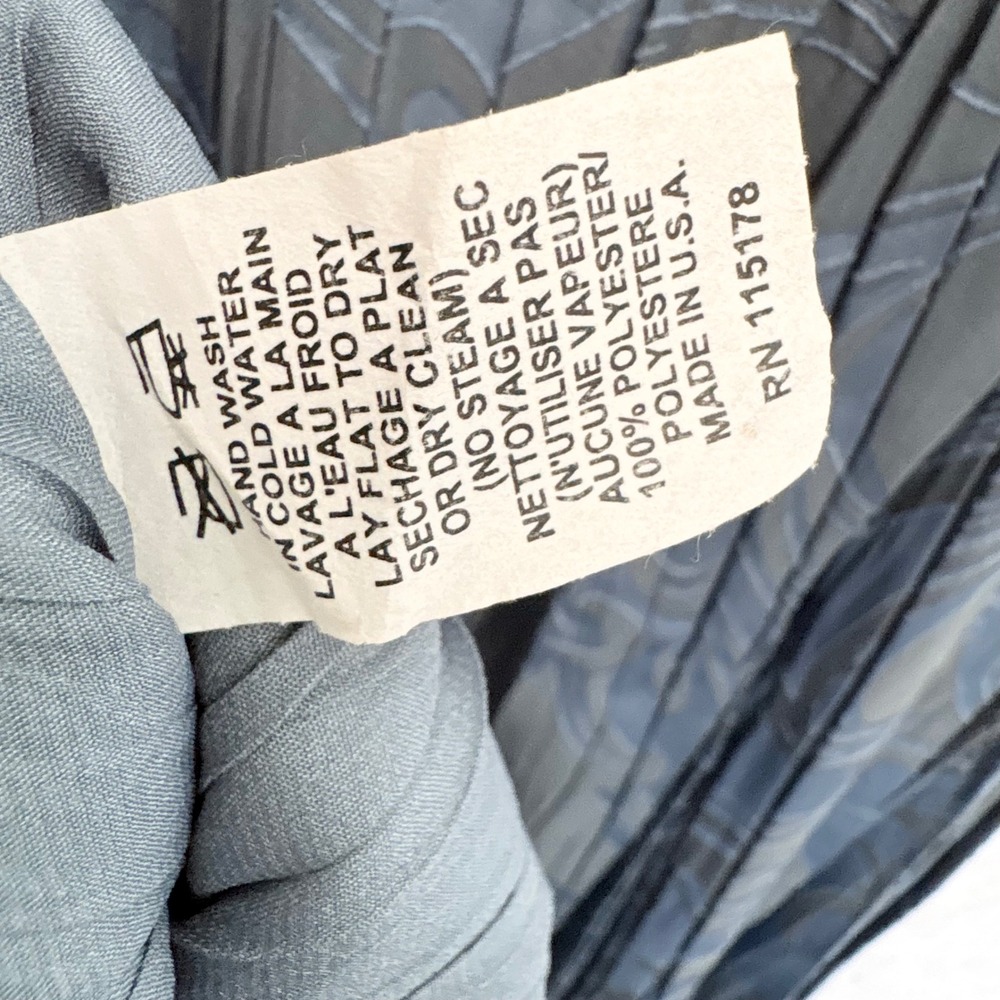 HAND WASH
IN COLD WATER
LAVAGE A LA MAIN
A L'EAU FROID
LAY FLAT TO DRY
SECHAGE A PLAT
OR DRY CLEAN
(NO STEAM)
NETTOYAGE A SEC
(N'UTILISER PAS
AUCUNE VAPEUR)
100% POLYESTER/
POLYESTERE
MADE IN U.S.A.
RN 115178